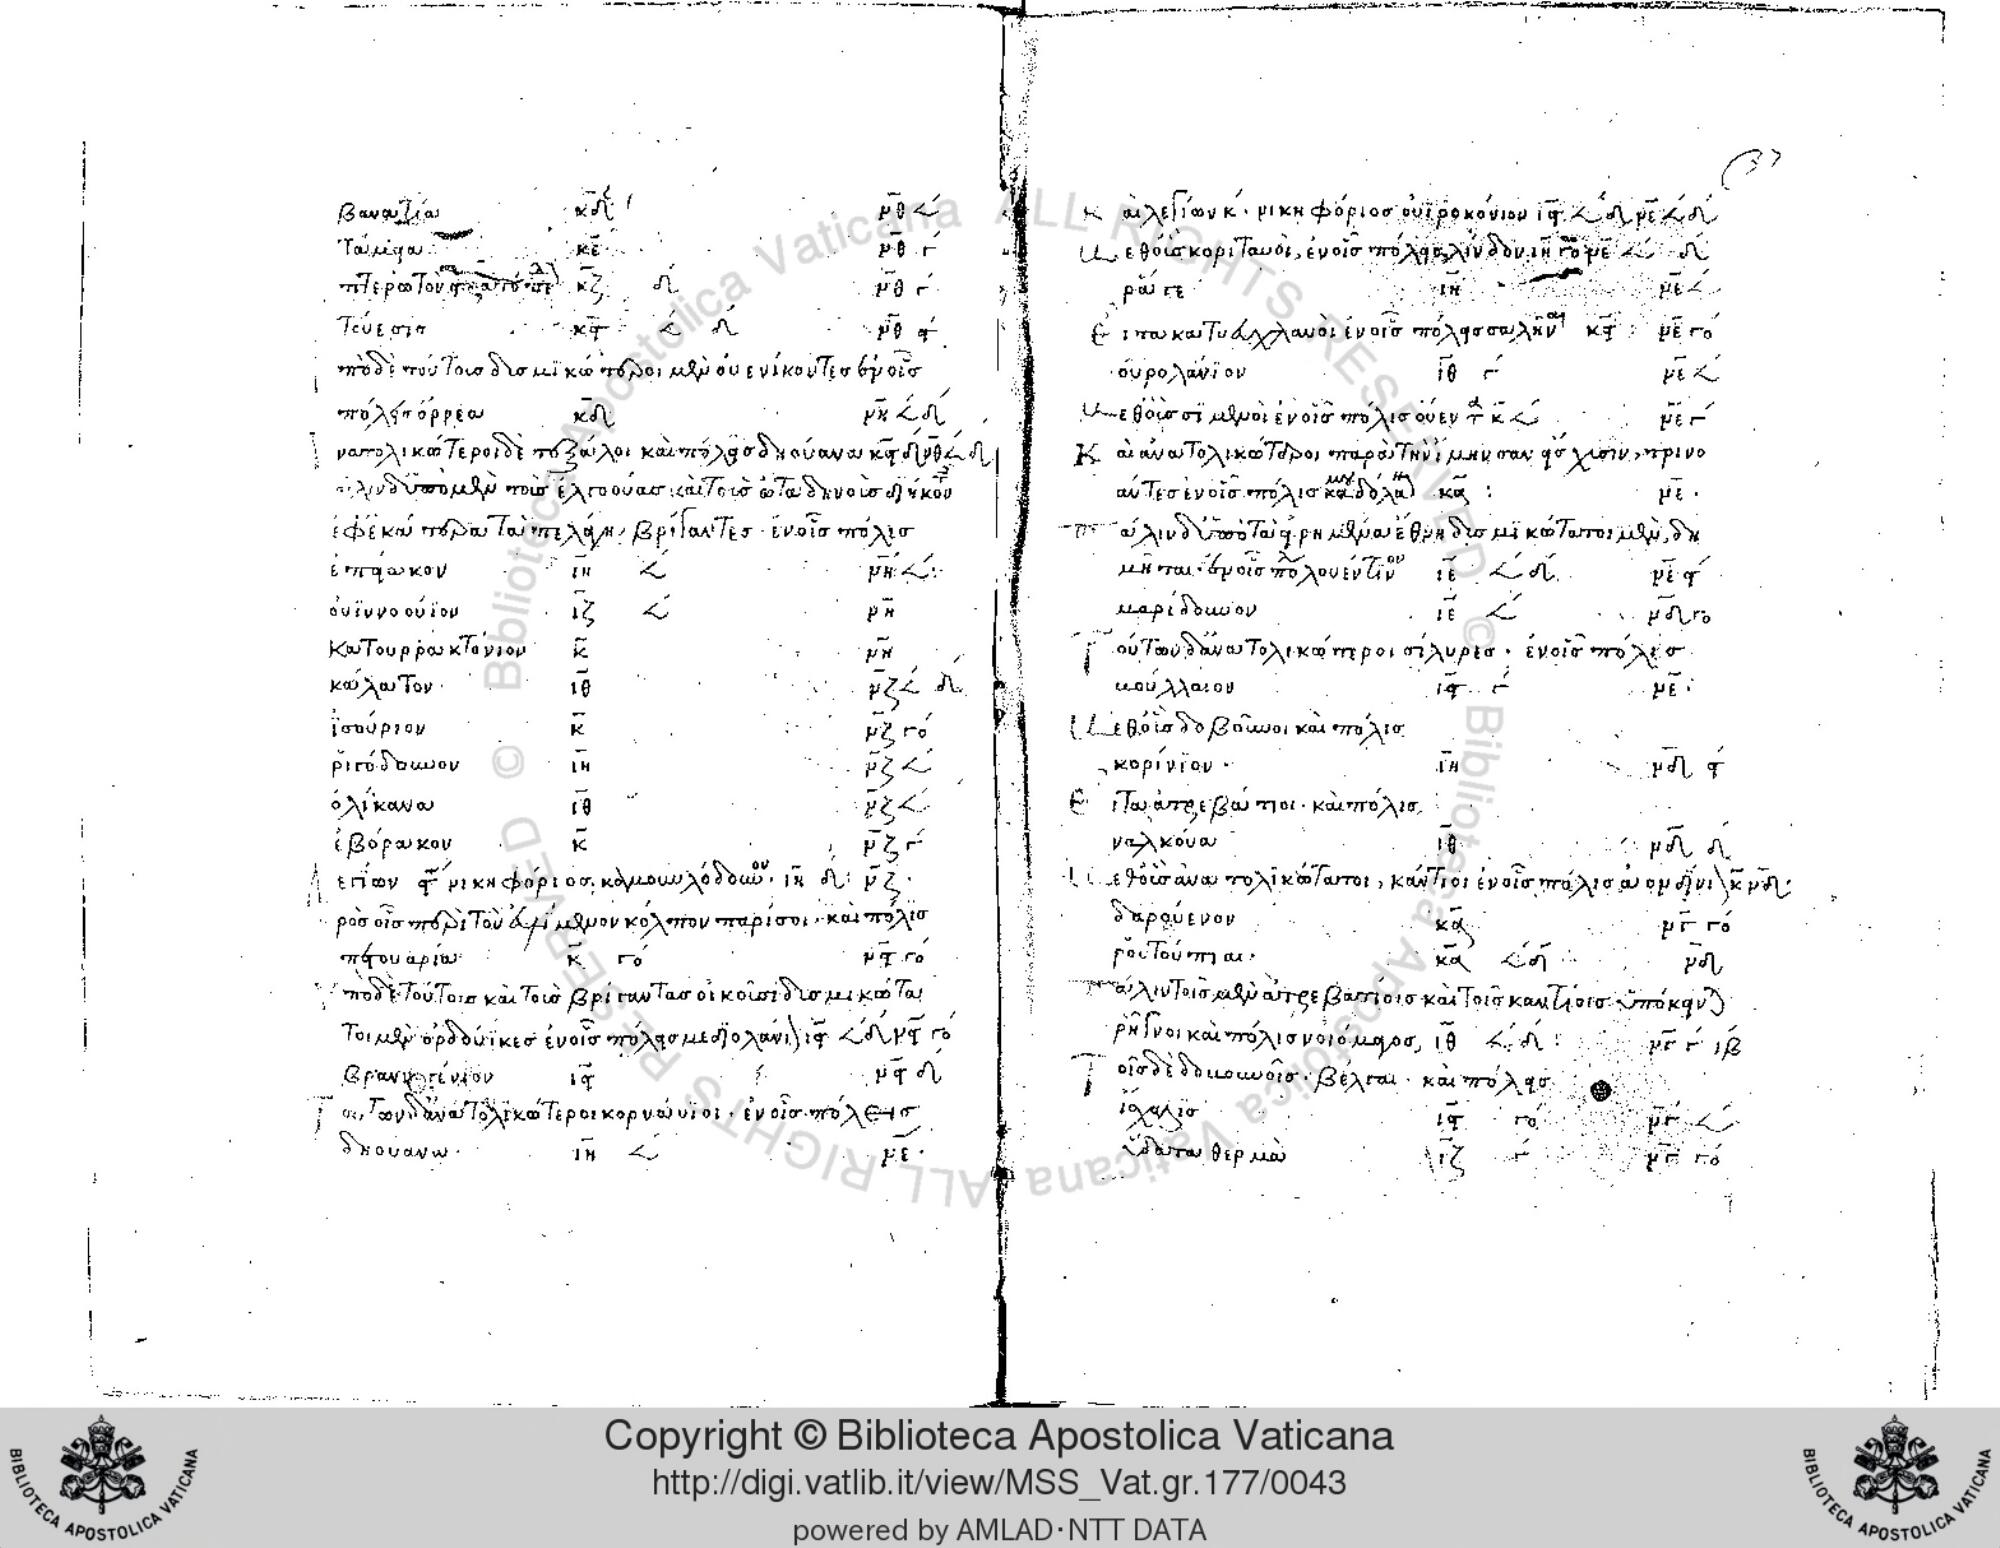 βανατία κδ μθ ∠
Τάμεια κε μθ γ
πτερωτὸν κζ δ μθ γ
Τούεσις κϛ ∠ δ μθ ϛ
πὸ δὲ τούτοις δυσμικώτεροι μὲν οὐενίκοντες ἐν οἷς
πόλις ὄρρεα κδ μη ∠ δ
νατολικώτεροι δὲ τοξαλοι καὶ πόλεις δηούανα κϛ δ μθ ∠ δ
άλιν δ' ὑπὸ μὲν τοὺς ἐλγοούας καὶ τοὺς ὠταδηνοὺς διήκοντες
ἐφ' ἑκάτερα τὰ πελάγη, βρίγαντες · ἐν οἷς πόλις
ἐπείακον ιη ∠ μη ∠
οὐϊννοούϊον ιζ ∠ μη
Κατουρρακτόνιον κ μη
κάλατον ιθ μζ ∠ δ
ἰσούριον κ μζ γο
ῥιγόδουνον ιη μζ ∠
ὀλίκανα ιθ μζ ∠
ἐβόρακον κ μζ γ
Λεγίων ϛ νικηφόριος, καμουλόδουνον · ιη δ μζ ·
ρὸς οἷς περὶ τὸν εὐλίμενον κόλπον παρίσοι · καὶ πόλις
πετουαρία κ γο μϛ γο
πὸ δὲ τούτοις καὶ τοῖς βρίγαντας οἰκοῦσι δυσμικώτα
τοι μὲν ὀρδούϊκες ἐν οἷς πόλεις μεδιολάνι) ιϛ ∠ δ μϛ γο
βρανογένιον ιϛ μϛ δ
Τούτων δ' ἀνατολικώτεροι κορναύϊοι · ἐν οἷς πόλεις
δηούανα · ιη ∠ με ·
37
Καὶ λεγίων κ · νικηφόριος οὐϊροκόνιον ιϛ ∠ δ με ∠ δ
Μεθ' οὓς κοριταυοὶ, ἐν οἷς πόλεις λίνδον ιη γο με ∠ δ
ῥάγε ιη με ∠
Εἶτα κατυευχλανοὶ ἐν οἷς πόλεις σαλῆναι κϛ με γο
οὐρολάνιον ιθ γ με ∠
Μεθ' οὓς σιμενοὶ ἐν οἷς πόλις οὐεντα κ ∠ με γ
Καὶ ἀνατολικώτεροι παρὰ τὴν ἴμηνσαν εἴσχυσιν, τρινο
άντες ἐν οἷς πόλις καμουδόλαν κα με ·
Πάλιν δ' ὑπὸ τὰ εἰρημένα ἔθνη δυσμικώτατοι μὲν, δη
μῆται · ἐν οἷς πόλις λουέντινον ιε ∠ δ με ϛ
μαρίδουνον ιε ∠ μδ γο
Τούτων δ' ἀνατολικώτεροι σίλυρες · ἐν οἷς πόλις
μούλλαιον ιϛ γ με
Μεθ' οὓς δοβοῦνοι καὶ πόλις
κορίνιον · ιη μδ ϛ
Εἶτα ἀτρεβάτιοι · καὶ πόλις
ναλκούα ιθ μδ δ
Μεθ' οὓς ἀνατολικώτατοι, κάντιοι ἐν οἷς πόλις λονδίνι) κ μδ
δαρούενον κα μγ γο
ῥουτούπιαι · κα ∠ δ μδ
Πάλιν τοῖς μὲν ἀτρεβατίοις καὶ τοῖς καντίοις ὑπόκειν)
ῥῆγνοι καὶ πόλις νοιόμαγος, ιθ ∠ δ μγ γ ιβ
Τοῖς δὲ δοβουνοῖς · βέλγαι · καὶ πόλεις
ἴχαλις ιϛ γο μγ ∠
ὕδατα θερμὰ ιζ γ μγ γο
Copyright © Biblioteca Apostolica Vaticana
http://digi.vatlib.it/view/MSS_Vat.gr.177/0043
powered by AMLAD·NTT DATA
BIBLIOTECA APOSTOLICA VATICANA
BIBLIOTECA APOSTOLICA VATICANA